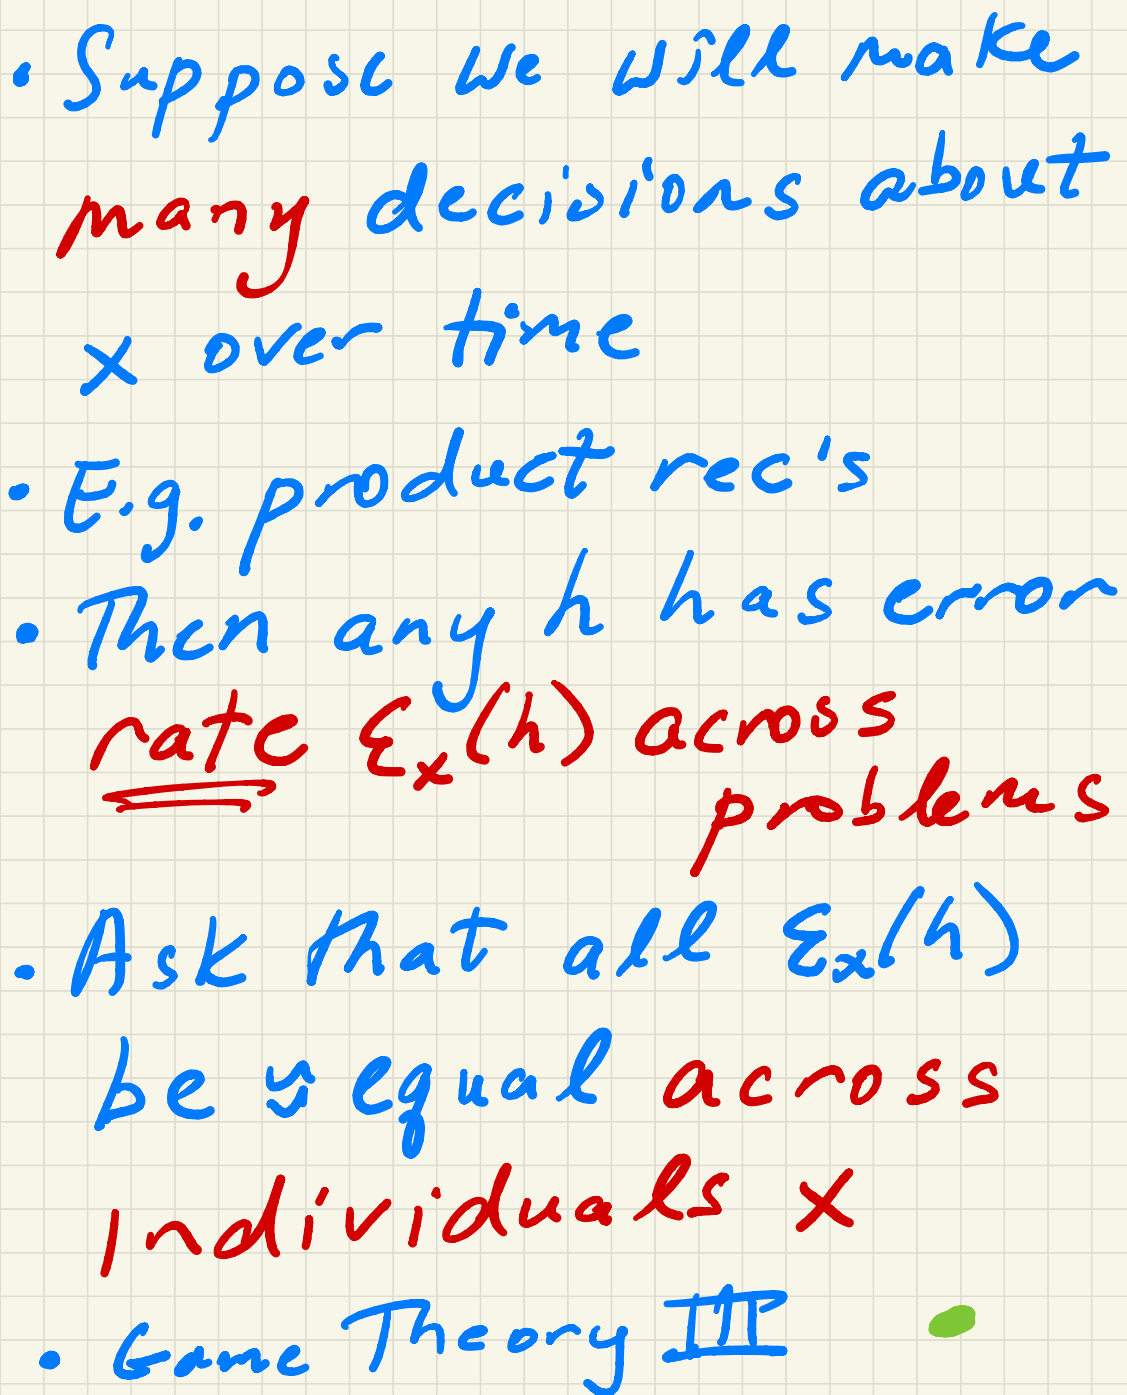 • Suppose we will make
many decisions about
x over time
• E.g. product rec's
• Then any h has error
rate Ɛₓ(h) across
problems
• Ask that all Ɛₓ(h)
be ≈ equal across
individuals x
• Game Theory III